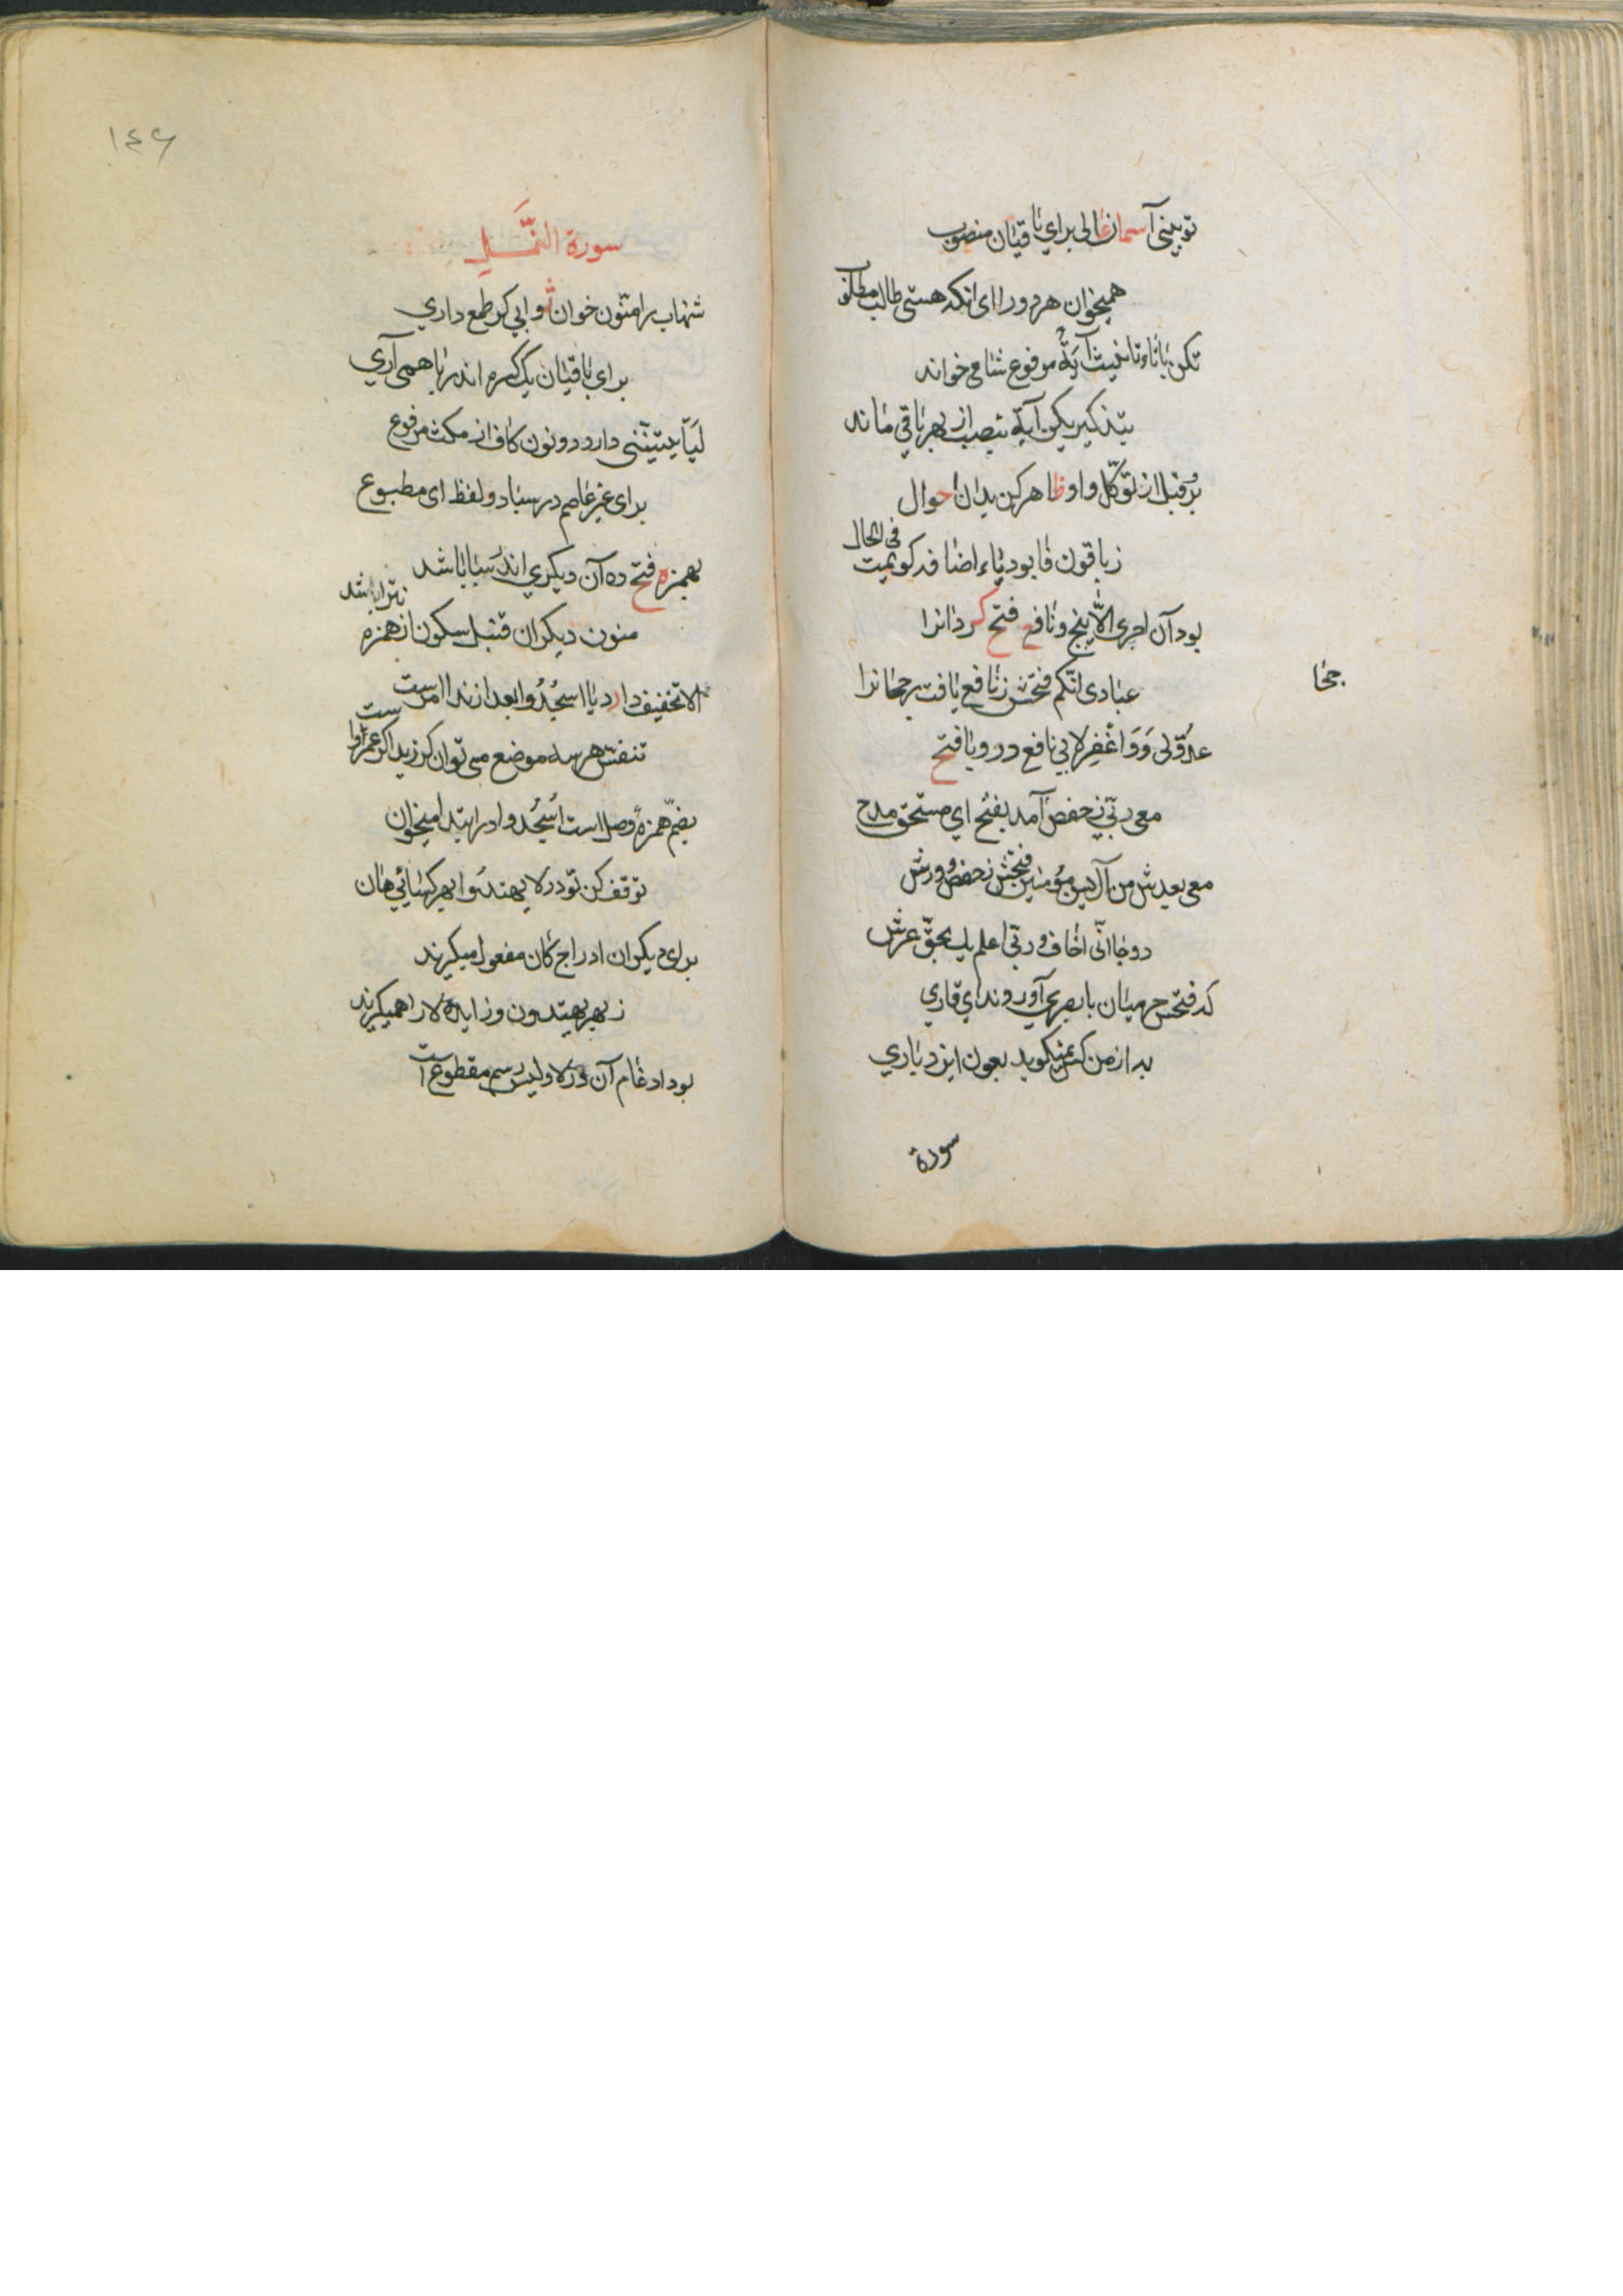 تو بینی آسمان عالی برای باقیان منصوب
همیخوان هر دو را ای انکه هستی طالب مطلوب
تکن باتا و تانیث آیةٌ مرفوع شامی خواند
بتذکیر یکن آیة بنصب از بهر باقی ماند
بر قبل از توکّل واو ظاهر کن بدان احوال
ز باقون فا بود یاء اضافه کویمت فی الحال
بود آن اجری الّا پنج و نافع فتح کرد انرا
عبادی انّکم فتحش ز نافع یافت برجا نرا
عدوّ لی وَ وَاغفر لابی نافع درو یا فتح
معی ربّی ز حفص آمد بفتح ای مستحق مدح
معی بعدش من آمد بس مؤمنین فتحش ز حفص و ورش
دو جا انّی اخاف و ربّی اعلم یك بحقّ عرش
که فتحش حرمیان با بصری آوروند ای قاری
به از من کس نمیکوید بعون ایزد باری
سورة
جحا
١٤٦
سورة النَّمل
شهاب را منّون خوان ثو ابی کر طمع داری
برای باقیان یک کسره اندر با همی آری
لَیَأتیَنّنی دارد دو نون کاف از مکث مرفوع
برای غیر عاصم در سباء دو لفظ ای مطبوع
بهمزه فتح ده آن دیکری اندر سبا باشد
منون دیکران قنبل سکون از همزه نترا باشد
الا تخفیف دارد یا اسجُدُوا بعد از ندا امرست
تنفّس هر سه موضع می توان کر زید اکر عمرواست
بضمّ همزهٔ وصل است اُسجُدوا در ابتدا میخوان
توقف کن تو در لا یهتدُوا بهر کسائی هان
برای دیکران ادراج کان مفعول میکیرند
ز بهر یهتدون و زایده لا را همیکیرند
بود ادغام آن در لا ولیس رسم مقطوع است